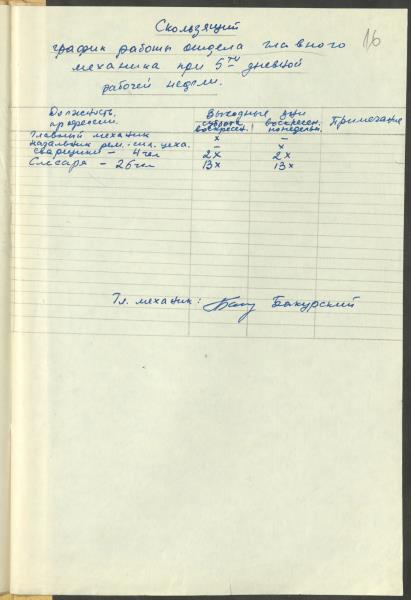 Скользящий
16
график работы отдела главного
механика при 5ти дневной
рабочей недели.
Должность, профессии. Выходные дни Примечание
суббота воскресен. воскресен. понедельн.
Главный механик х –
начальник рем. мех. цеха. – х
сварщики – 4 чел 2х 2х
Слесаря – 26 чел 13х 13х
Гл. механик: Бакурский